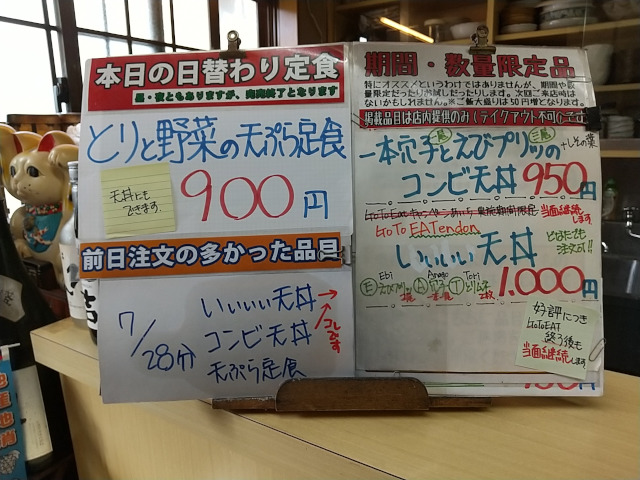 本日の日替わり定食
昼・夜ともありますが、肉肉終了となります
とりと野菜の天ぷら定食
天丼にも
できます。
900円
前日注文の多かった品目
7/28分
いぃぃい天丼→
コンビ天丼
天ぷら定食
コレです
期間・数量限定品
特にオススメというわけではありませんが、期間や数
量限定だったりお試しだったりします。次回ご来店時は
ないかもしれません。※ご飯大盛りは50円増となります。
掲載品目は店内提供のみ(テイクアウト不可)です
一本穴子とえびプリッの
+しその葉
コンビ天丼 950円
当面継続します
GoTo EATendon
とはた2も
注文!!
いぃぃい天丼
1,000円
Ebi
Anago
Tori
好評につき
GoToEAT
終了後も
当面継続します。